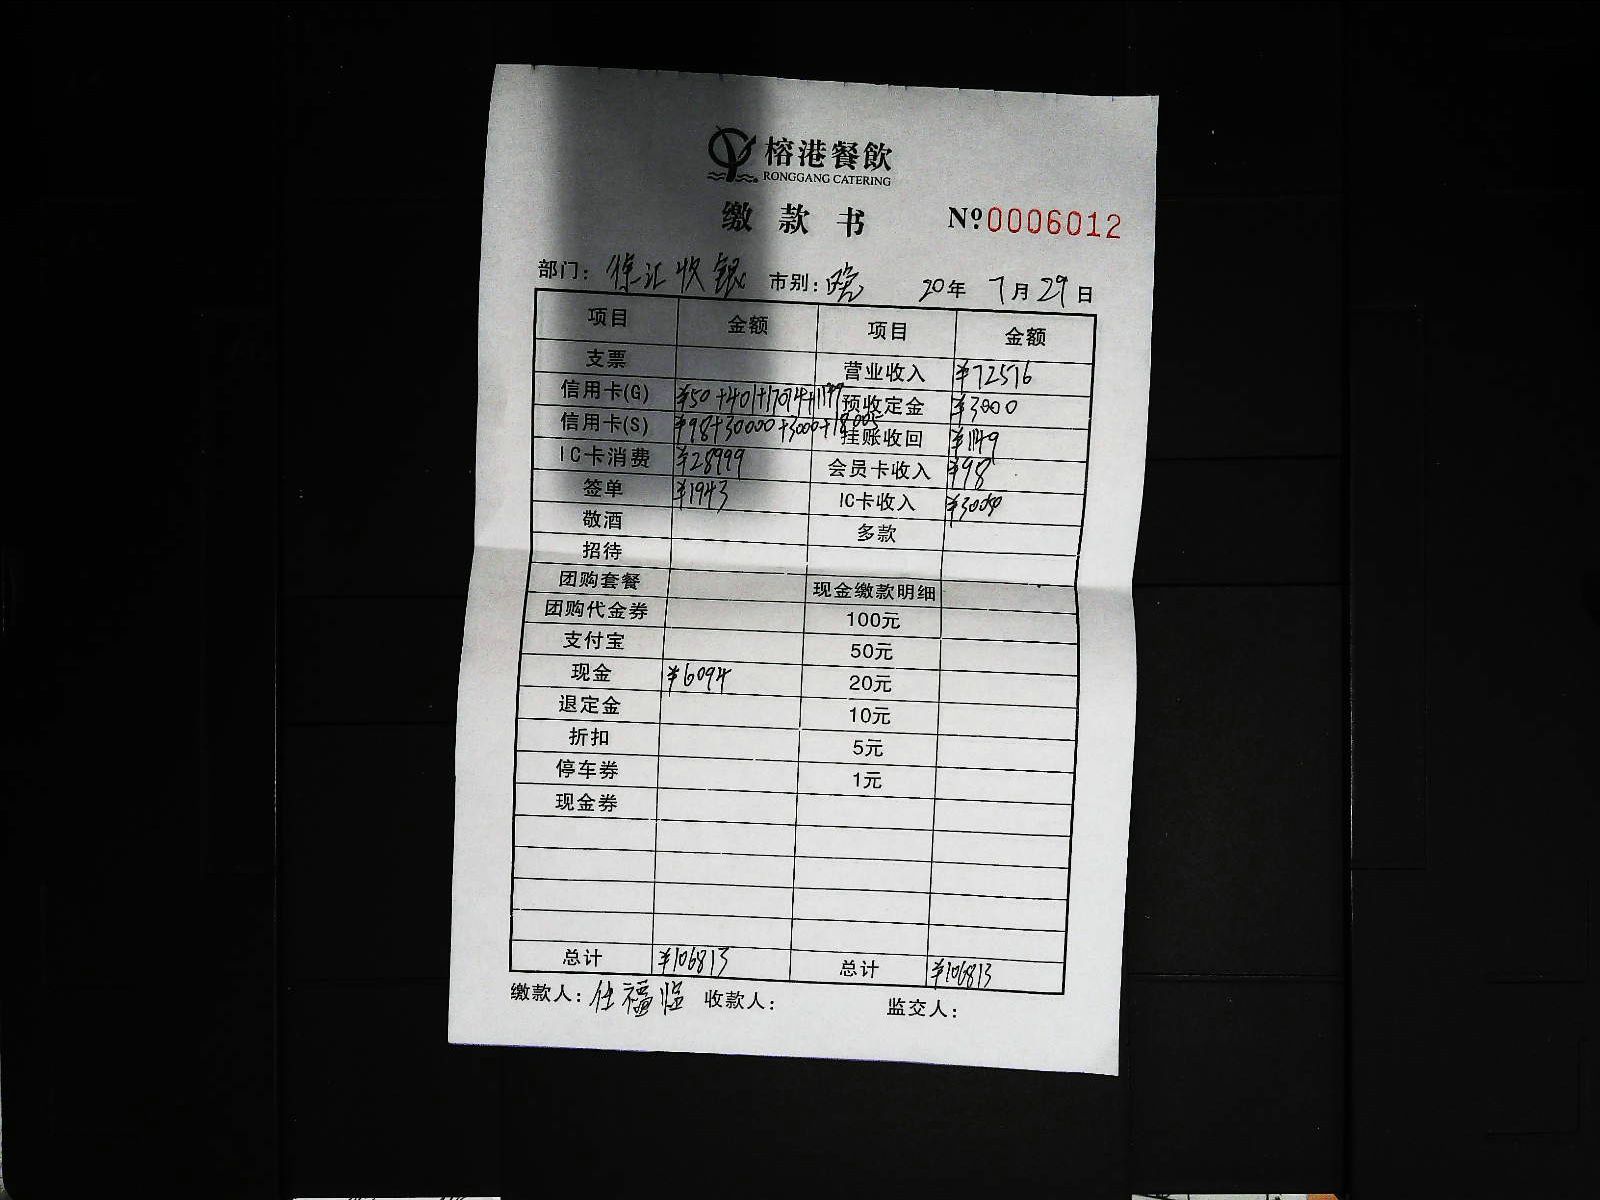 榕港餐飲
RONGGANG CATERING
缴款书 №0006012
部门：徐汇收银 市别：晚 20年 7月29日
项目 金额 项目 金额
支票 营业收入 ¥72566
信用卡(G) ¥50+401+17074+1149 预收定金 ¥3000
信用卡(S) ¥98+30000+3000+18005 挂账收回 ¥1149
IC卡消费 ¥28999 会员卡收入 ¥98
签单 ¥1943 IC卡收入 ¥30000
敬酒 多款
招待
团购套餐 现金缴款明细
团购代金券 100元
支付宝 50元
现金 ¥6094 20元
退定金 10元
折扣 5元
停车券 1元
现金券
总计 ¥106813 总计 ¥106813
缴款人：任福 收款人： 监交人：